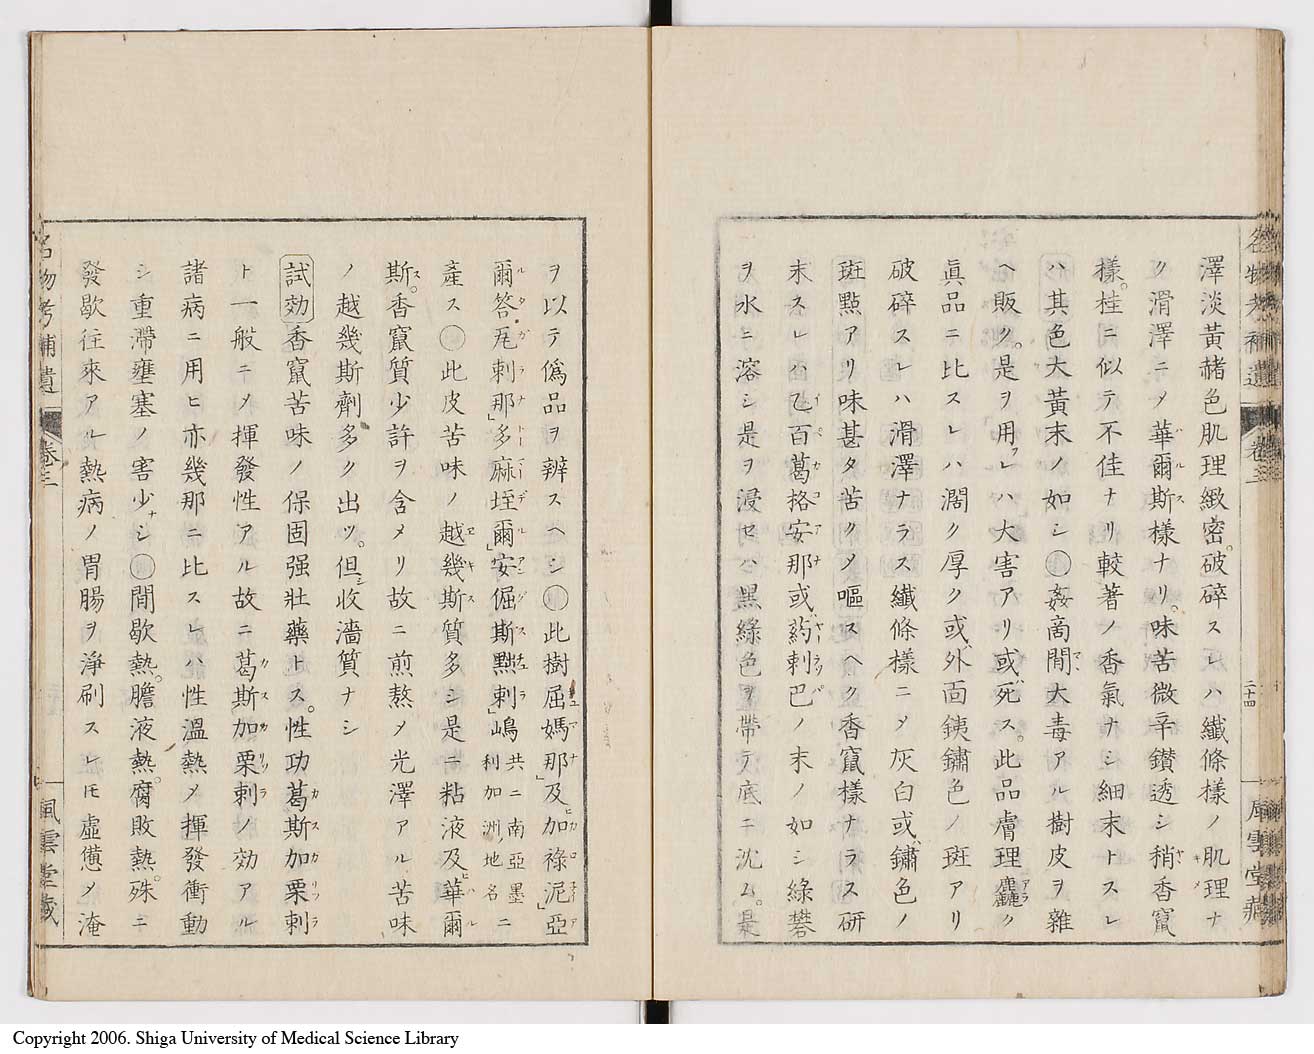 名物考補遺 卷三 二十四 風雲堂藏
澤淡黃赭色肌理緻密。破碎スレハ纖條樣ノ肌理ナ
ク滑澤ニメ華爾斯樣ナリ。味苦微辛鑚透シ稍香竄
樣。桂ニ似テ不佳ナリ較著ノ香氣ナシ細末トスレ
ハ其色大黃末ノ如シ◯姦商間大毒アル樹皮ヲ雜
ヘ販ク。是ヲ用フレハ大害アリ或ハ死ス。此品膚理麤ク
眞品ニ比スレハ濶ク厚ク或ハ外面銕鏽色ノ斑アリ
破碎スレハ滑澤ナラス纖條樣ニメ灰白或ハ鏽色ノ
斑點アリ味甚タ苦クメ嘔スヘク香竄樣ナラス硏
末スレハ乙百葛格安那或ハ葯剌巴ノ末ノ如シ綠礬
ヲ水ニ溶シ是ヲ浸セハ黑綠色ヲ帶テ底ニ沈ム。是
ヲ以テ僞品ヲ辨スヘシ◯此樹屈媽那」及ヒ加祿泥」亞
爾答・瓦剌那」多麻垤爾」安倔斯黜剌」嶋共ニ南亞墨利加洲ノ地名ニ
產ス◯此皮苦味ノ越幾斯質多シ是ニ粘液及ヒ華爾
斯。香竄質少許ヲ含メリ故ニ煎熬メ光澤アル苦味
ノ越幾斯劑多ク出ツ。但シ收濇質ナシ
試効香竄苦味ノ保固强壯藥トス。性功葛斯加栗剌
ト一般ニメ揮發性アル故ニ葛斯加栗剌ノ効アル
諸病ニ用ヒ亦幾那ニ比スレハ性溫熱メ揮發衝動
シ重滯壅塞ノ害少ナシ◯間歇熱。膽液熱。腐敗熱。殊ニ
發歇往來アル熱病ノ胃腸ヲ淨刷スレモ虛憊メ淹
名物考補遺 卷三 風雲堂藏
Copyright 2006. Shiga University of Medical Science Library